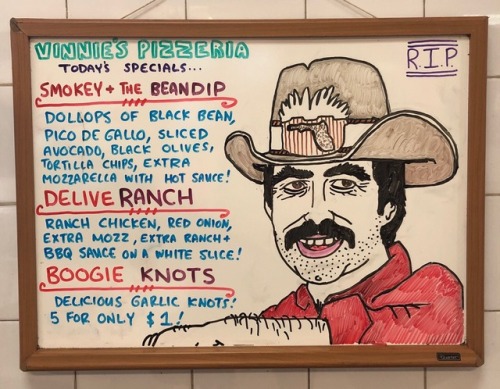 VINNIE'S PIZZERIA
TODAY'S SPECIALS...
R.I.P.
SMOKEY + THE BEANDIP
DOLLOPS OF BLACK BEAN,
PICO DE GALLO, SLICED
AVOCADO, BLACK OLIVES,
TORTILLA CHIPS, EXTRA
MOZZARELLA WITH HOT SAUCE!
DELIVE RANCH
RANCH CHICKEN, RED ONION,
EXTRA MOZZ, EXTRA RANCH +
BBQ SAUCE ON A WHITE SLICE!
BOOGIE KNOTS
DELICIOUS GARLIC KNOTS!
5 FOR ONLY $1!